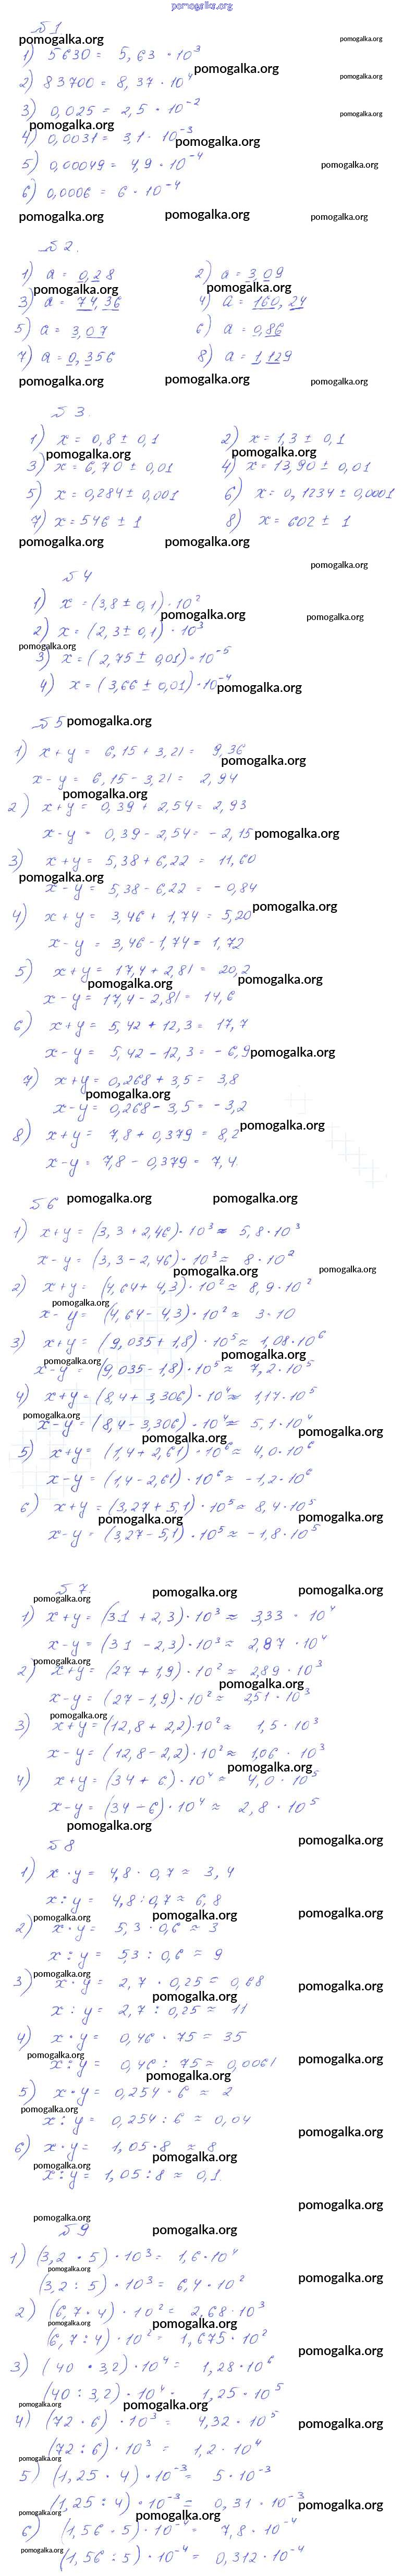 pomogalka.org
№1
pomogalka.org
1) 5630 = 5,63 · 10³
pomogalka.org
2) 83700 = 8,37 · 10⁴
pomogalka.org
pomogalka.org
3) 0,025 = 2,5 · 10⁻²
pomogalka.org
pomogalka.org
4) 0,0031 = 3,1 · 10⁻³
pomogalka.org
5) 0,00049 = 4,9 · 10⁻⁴
pomogalka.org
6) 0,0006 = 6 · 10⁻⁴
pomogalka.org pomogalka.org pomogalka.org
№2.
1) a = 0,28 2) a = 3,09
pomogalka.org pomogalka.org
3) a = 74,36 4) a = 160,24
5) a = 3,07 6) a = 0,86
7) a = 0,356 8) a = 1,129
pomogalka.org pomogalka.org pomogalka.org
№3.
1) x = 0,8 ± 0,1 2) x = 1,3 ± 0,1
pomogalka.org pomogalka.org
3) x = 6,70 ± 0,01 4) x = 13,90 ± 0,01
5) x = 0,284 ± 0,001 6) x = 0,1234 ± 0,0001
7) x = 546 ± 1 8) x = 602 ± 1
pomogalka.org pomogalka.org
pomogalka.org
№4
1) x = (3,8 ± 0,1) · 10²
pomogalka.org pomogalka.org
2) x = (2,3 ± 0,1) · 10³
pomogalka.org
3) x = (2,75 ± 0,01) · 10⁻⁵
4) x = (3,66 ± 0,01) · 10⁻⁴
pomogalka.org
№5 pomogalka.org
1) x + y = 6,15 + 3,21 = 9,36
pomogalka.org
x - y = 6,15 - 3,21 = 2,94
pomogalka.org
2) x + y = 0,39 + 2,54 = 2,93
x - y = 0,39 - 2,54 = - 2,15 pomogalka.org
3) x + y = 5,38 + 6,22 = 11,60
pomogalka.org
x - y = 5,38 - 6,22 = - 0,84
pomogalka.org
4) x + y = 3,46 + 1,74 = 5,20
x - y = 3,46 - 1,74 = 1,72
5) x + y = 17,4 + 2,81 = 20,2
pomogalka.org pomogalka.org
x - y = 17,4 - 2,81 = 14,6
6) x + y = 5,42 + 12,3 = 17,7
x - y = 5,42 - 12,3 = - 6,9 pomogalka.org
7) x + y = 0,268 + 3,5 = 3,8
pomogalka.org
x - y = 0,268 - 3,5 = - 3,2
pomogalka.org
8) x + y = 7,8 + 0,379 = 8,2
x - y = 7,8 - 0,379 = 7,4
№6 pomogalka.org pomogalka.org
1) x + y = (3,3 + 2,46) · 10³ ≈ 5,8 · 10³
x - y = (3,3 - 2,46) · 10³ ≈ 8 · 10²
pomogalka.org pomogalka.org
2) x + y = (4,64 + 4,3) · 10² ≈ 8,9 · 10²
pomogalka.org
x - y = (4,64 - 4,3) · 10² ≈ 3 · 10
3) x + y = (9,035 + 1,8) · 10⁵ ≈ 1,08 · 10⁶
pomogalka.org pomogalka.org
x - y = (9,035 - 1,8) · 10⁵ ≈ 7,2 · 10⁵
4) x + y = (8,4 + 3,306) · 10⁴ ≈ 1,17 · 10⁵
pomogalka.org
x - y = (8,4 - 3,306) · 10⁴ ≈ 5,1 · 10⁴
pomogalka.org pomogalka.org
5) x + y = (1,4 + 2,61) · 10⁶ ≈ 4,0 · 10⁶
x - y = (1,4 - 2,61) · 10⁶ ≈ - 1,2 · 10⁶
6) x + y = (3,27 + 5,1) · 10⁵ ≈ 8,4 · 10⁵
pomogalka.org pomogalka.org
x - y = (3,27 - 5,1) · 10⁵ ≈ - 1,8 · 10⁵
№7.
pomogalka.org pomogalka.org pomogalka.org
1) x + y = (31 + 2,3) · 10³ ≈ 3,33 · 10⁴
x - y = (31 - 2,3) · 10³ ≈ 2,87 · 10⁴
pomogalka.org
2) x + y = (27 + 1,9) · 10² ≈ 2,89 · 10³
pomogalka.org
x - y = (27 - 1,9) · 10² ≈ 2,51 · 10³
pomogalka.org
3) x + y = (12,8 + 2,2) · 10² ≈ 1,5 · 10³
x - y = (12,8 - 2,2) · 10² ≈ 1,06 · 10³
pomogalka.org
4) x + y = (34 + 6) · 10⁴ ≈ 4,0 · 10⁵
x - y = (34 - 6) · 10⁴ ≈ 2,8 · 10⁵
pomogalka.org
№8 pomogalka.org
1) x · y = 4,8 · 0,7 ≈ 3,4
x : y = 4,8 : 0,7 ≈ 6,8
pomogalka.org pomogalka.org pomogalka.org
2) x · y = 5,3 · 0,6 ≈ 3
x : y = 5,3 : 0,6 ≈ 9
pomogalka.org
3) x · y = 2,7 · 0,25 ≈ 0,68
pomogalka.org pomogalka.org
x : y = 2,7 : 0,25 ≈ 11
4) x · y = 0,46 · 75 = 35
pomogalka.org pomogalka.org
x : y = 0,46 : 75 ≈ 0,0061
pomogalka.org
5) x · y = 0,254 · 6 ≈ 2
pomogalka.org
x : y = 0,254 : 6 ≈ 0,04
pomogalka.org
6) x · y = 1,05 · 8 ≈ 8
pomogalka.org pomogalka.org
x : y = 1,05 : 8 ≈ 0,1
pomogalka.org
pomogalka.org
№9 pomogalka.org
1) (3,2 · 5) · 10³ = 1,6 · 10⁴
pomogalka.org
(3,2 : 5) · 10³ = 6,4 · 10² pomogalka.org
2) (6,7 · 4) · 10² = 2,68 · 10³
pomogalka.org pomogalka.org
(6,7 : 4) · 10² = 1,675 · 10²
pomogalka.org
3) (40 · 3,2) · 10⁴ = 1,28 · 10⁶
(40 : 3,2) · 10⁴ = 1,25 · 10⁵
pomogalka.org pomogalka.org
4) (72 · 6) · 10³ = 4,32 · 10⁵ pomogalka.org
(72 : 6) · 10³ = 1,2 · 10⁴
pomogalka.org
5) (1,25 · 4) · 10⁻³ = 5 · 10⁻³
(1,25 : 4) · 10⁻³ = 0,31 · 10⁻³ pomogalka.org
pomogalka.org pomogalka.org
6) (1,56 · 5) · 10⁻⁴ = 7,8 · 10⁻⁴
pomogalka.org
(1,56 : 5) · 10⁻⁴ = 0,312 · 10⁻⁴